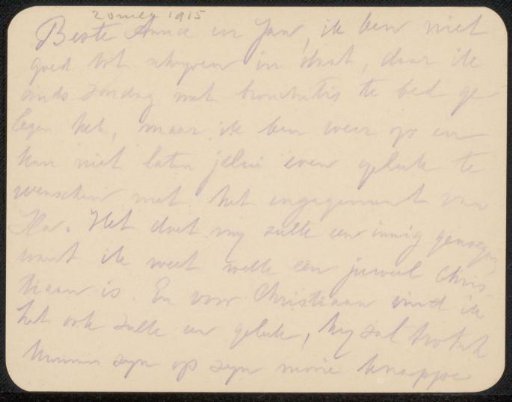 20 mei 1915
Beste Anna en Jan, ik ben niet
goed tot schryven in staat, daar ik
sinds Zondag met bronchitis te bed ge-
legen heb, maar ik ben weer op en
kan niet laten jelui even geluk te
wenschen met het engagement van
Het doet my zulk een innig genoegen
want ik weet welk een juweel Chris
tiaan is. En voor Christiaan vind ik
het ook zulk een geluk, hy zal trotsch
kunnen zyn op zyn mooie knappe